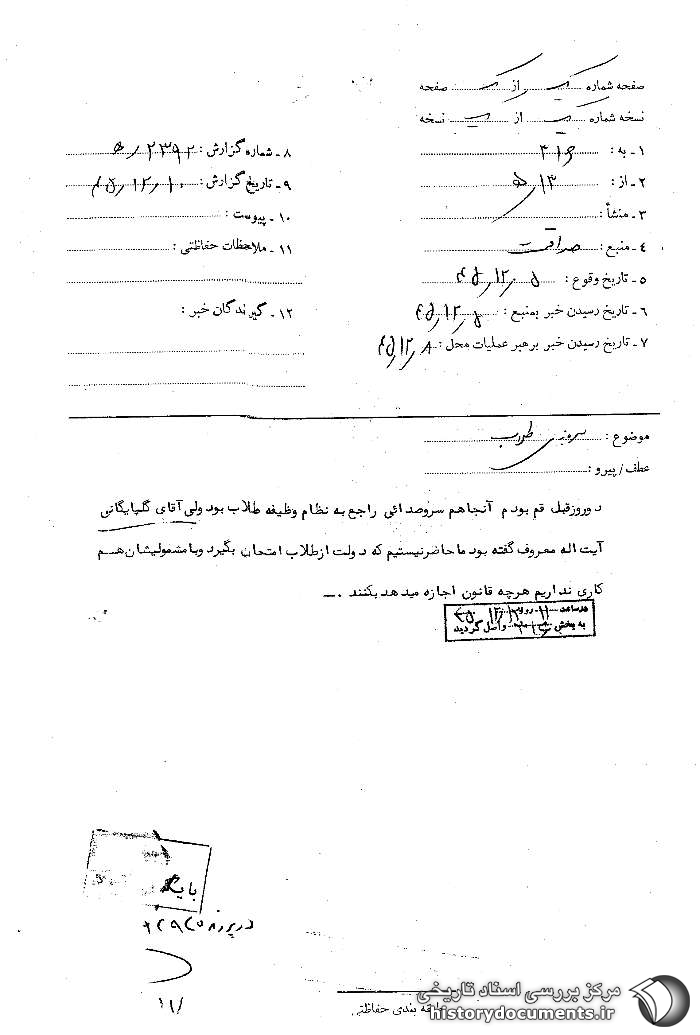 صفحه شماره یک از یک صفحه
نسخه شماره یک از نسخه
۱ـ به : ۳۱۶
۲ـ از : ۱۳/ه
۳ـ منشأ :
۴ـ منبع : صداقت
۵ـ تاریخ وقوع : ۴۵/۱۲/۵
۶ـ تاریخ رسیدن خبر بمنبع : ۴۵/۱۲/۵
۷ـ تاریخ رسیدن خبر برهبر عملیات محل : ۴۵/۱۲/۸
۸ـ شماره گزارش : ۲۳۹۲/ه
۹ـ تاریخ گزارش : ۴۵/۱۲/۱۰
۱۰ـ پیوست :
۱۱ـ ملاحظات حفاظتی :
۱۲ـ گیرندگان خبر :
موضوع : طلاب
عطف/پیرو :
دوروزقبل قم بودم آنجاهم سروصدائی راجع به نظام وظیفه طلاب بود ولی آقای گلپایگانی
آیت اله معروف گفته بود ماحاضرنیستیم که دولت ازطلاب امتحان بگیرد وبا مشمولیشان هم
کاری نداریم هرچه قانون اجازه میدهد بکنند .ـــ
در ساعت ۱۱ روز
به بخش ۳۱۶ واصل گردید
در پرونده
۱۱/
بندی حفاظتی
مرکز بررسی اسناد تاریخی
historydocuments.ir